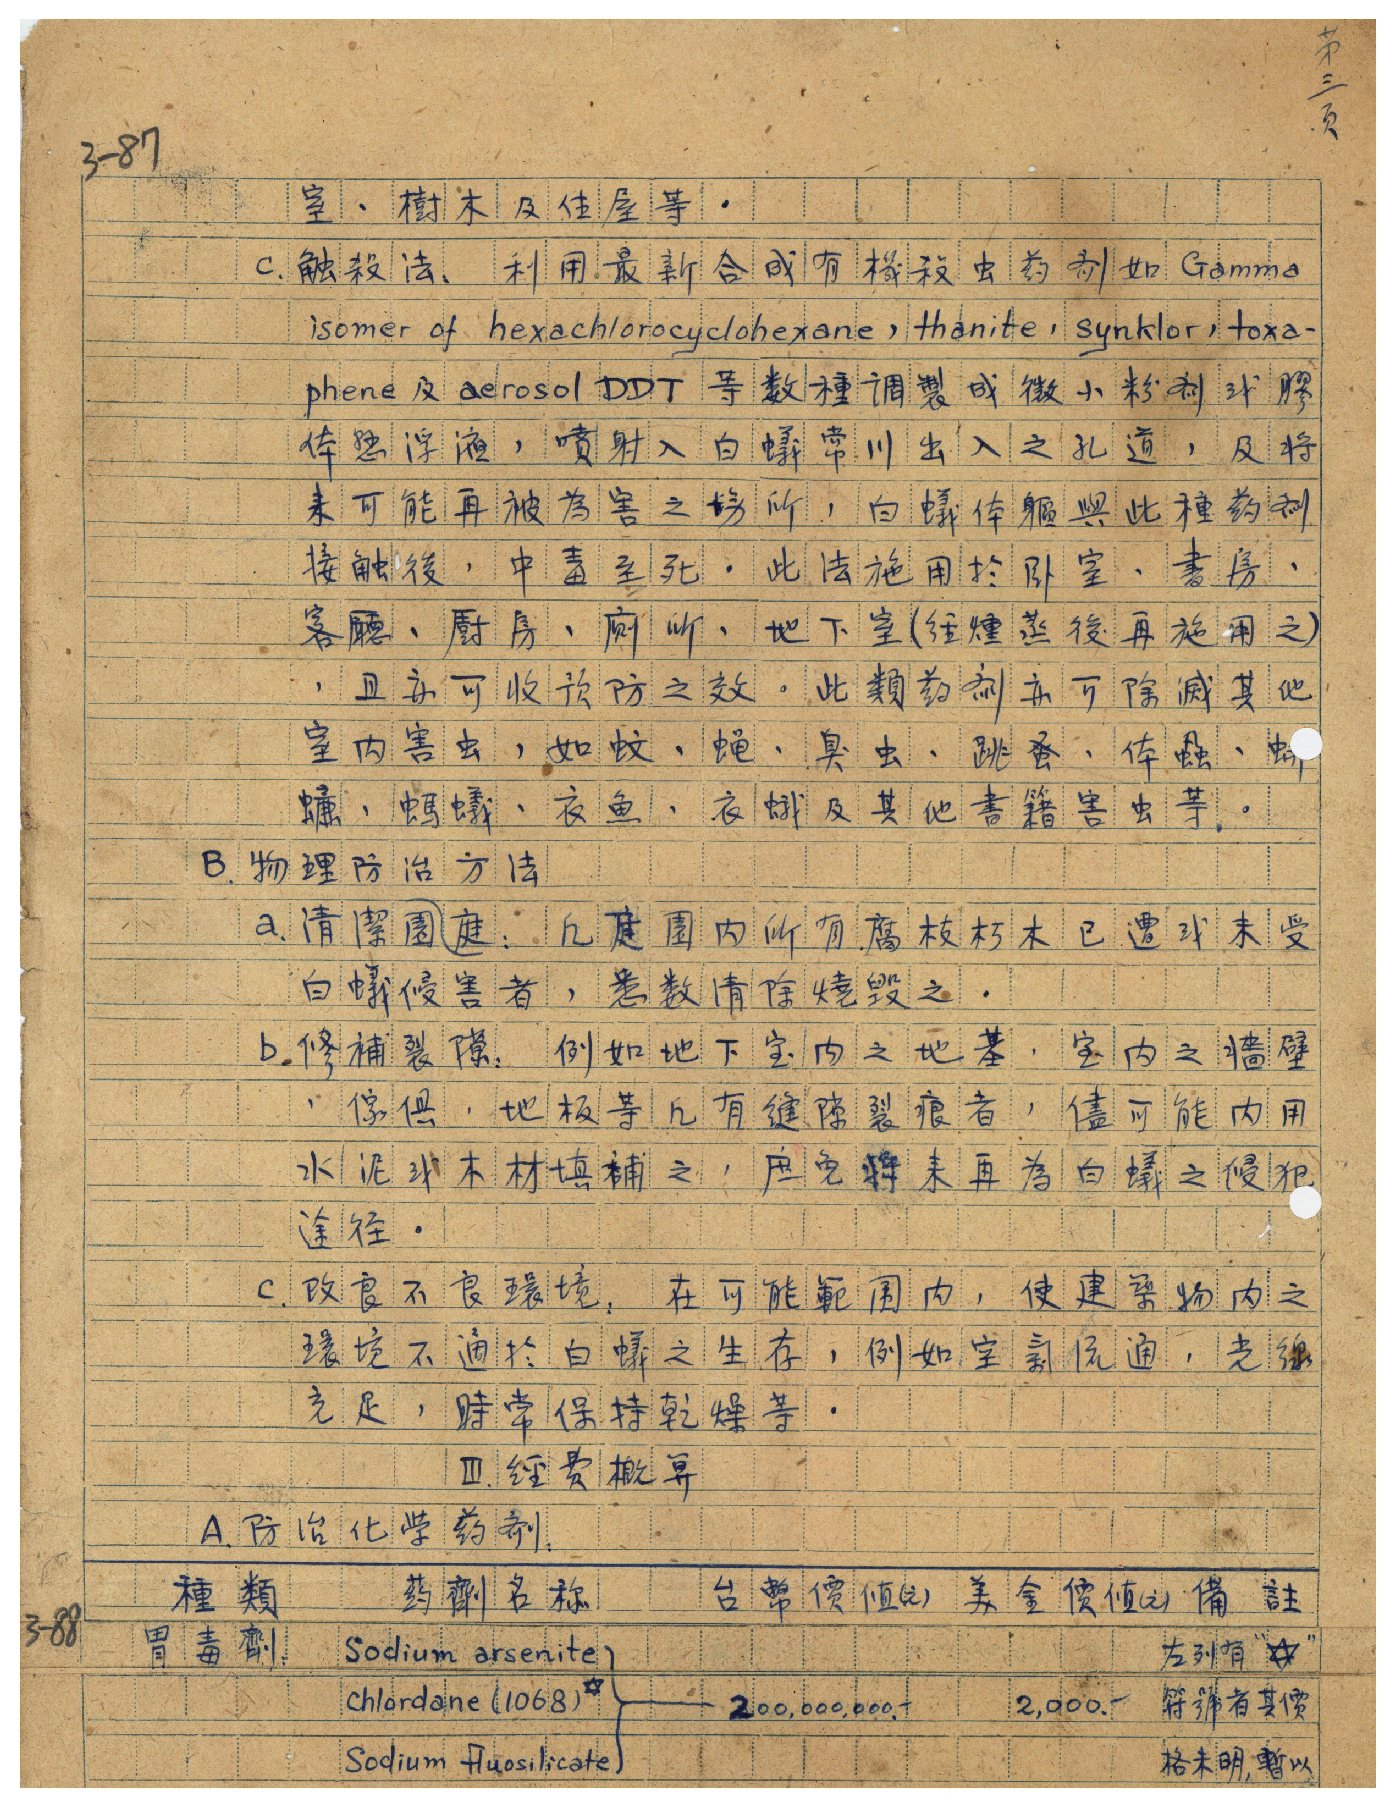 第三頁
3-87
室、樹木及住屋等。
C. 触殺法、利用最新合成有機殺虫药剂如 Gamma
isomer of hexachlorocyclohexane, thanite, synklor, toxa-
phene 及 aerosol DDT 等数種調製成微小粉剂或膠
体悬浮液，噴射入白蟻常川出入之孔道，及将
来可能再被為害之場所，白蟻体軀與此種药剂
接触後，中毒至死。此法施用於卧室、書房、
客廳、厨房、廁所、地下室(经燻蒸後再施用之)
，且亦可收预防之效。此類药剂亦可除滅其他
室内害虫，如蚊、蝇、臭虫、跳蚤、体蝨、蟑
螂、螞蟻、衣魚、衣蛾及其他書籍害虫等。
B. 物理防治方法
a. 清潔園庭：凡庭園内所有腐枝朽木已遭或未受
白蟻侵害者，悉数清除燒毀之。
b. 修補裂隙：例如地下室内之地基，室内之牆壁
，傢俱，地板等凡有縫隙裂痕者，儘可能内用
水泥或木材填補之，庶免将来再為白蟻之侵犯
途径。
C. 改良不良環境：在可能範围内，使建築物内之
環境不適於白蟻之生存，例如空氣流通，光線
充足，時常保持乾燥等。
III. 經費概算
A. 防治化学药剂：
種類 药劑名称 台幣價值(元) 美金價值(元) 備註
3-88
胃毒劑： Sodium arsenite 左列有"☆"
Chlordane (1068)☆ 200,000,000.- 2,000.- 符號者其價
Sodium fluosilicate 格未明，暫以